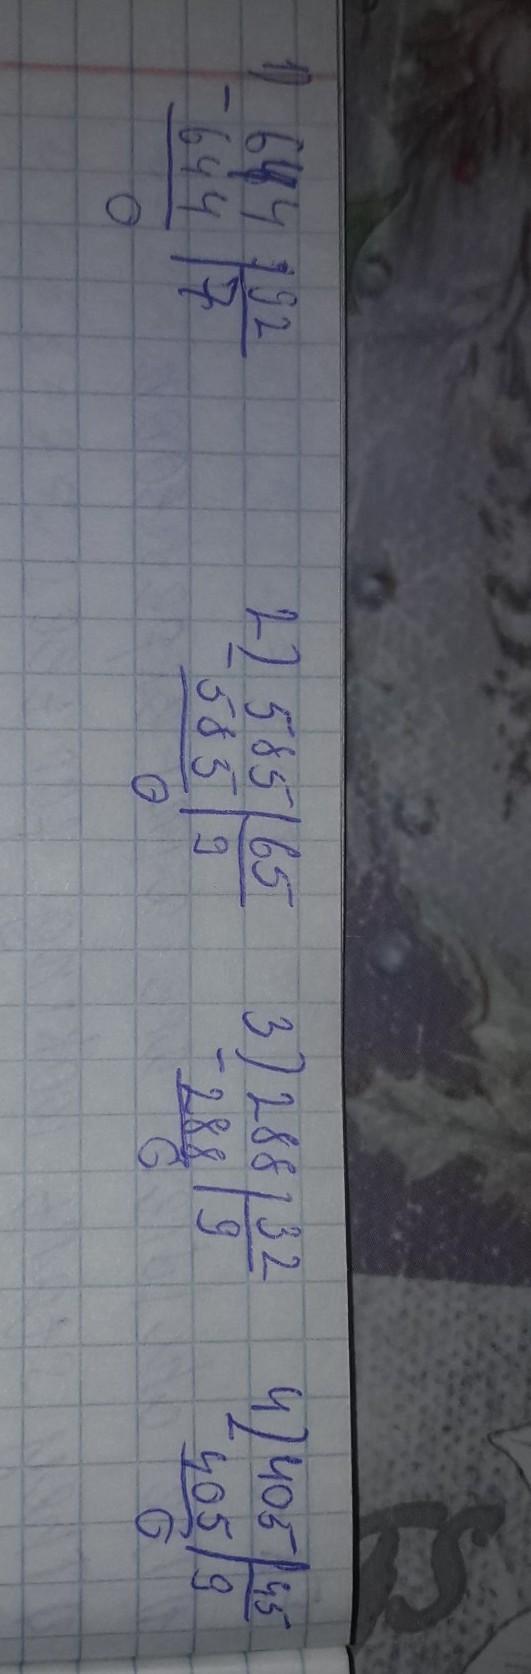 1) 644 92
- 644 7
0
2) 585 65
- 585 9
0
3) 288 32
- 288 9
0
4) 405 45
- 405 9
0